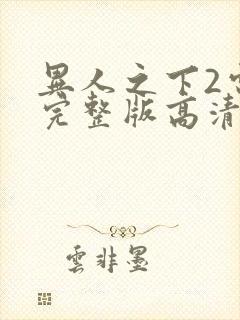 異人之下2
完整版高清
雲非墨